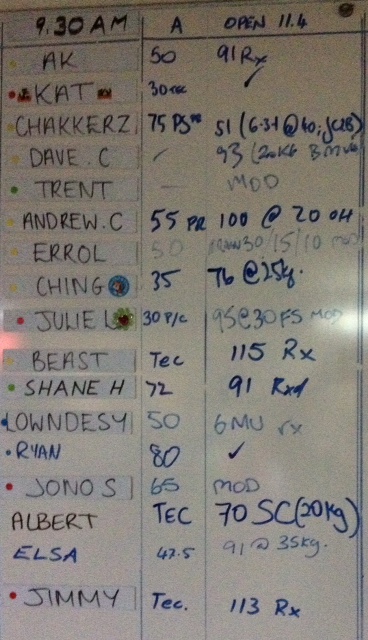 9.30 AM A OPEN 11.4
AK 50 91 Rx
KAT 30 TEC ✓
CHAKKERZ 75 51 (6:31 @ 40;
DAVE.C 93 (20KG
TRENT — MOD
ANDREW.C 55 PR 100 @ 20 OH
ERROL 50 30/15/10 MOD
CHING 35 76 @ 25kg.
JULIE L 30 P/C 95@30 FS MOD
BEAST Tec 115 Rx
SHANE H 72 91 Rxd
LOWNDESY 50 6MU rx
RYAN 80 ✓
JONO S 65 MOD
ALBERT TEC 70 SC (20kg)
ELSA 47.5 91 @ 35kg.
JIMMY Tec. 113 Rx